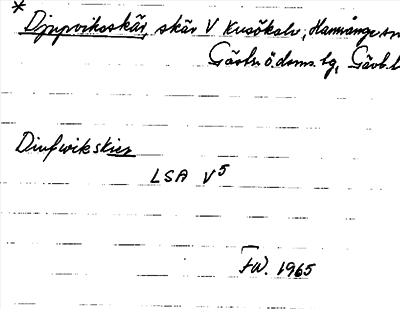 * Djupviksskär, skär V Kusökalv, Hamrånge sn
Gästr. ö. doms. lg, Gävl. l
Diufwikskier
LSA V5
FW. 1965